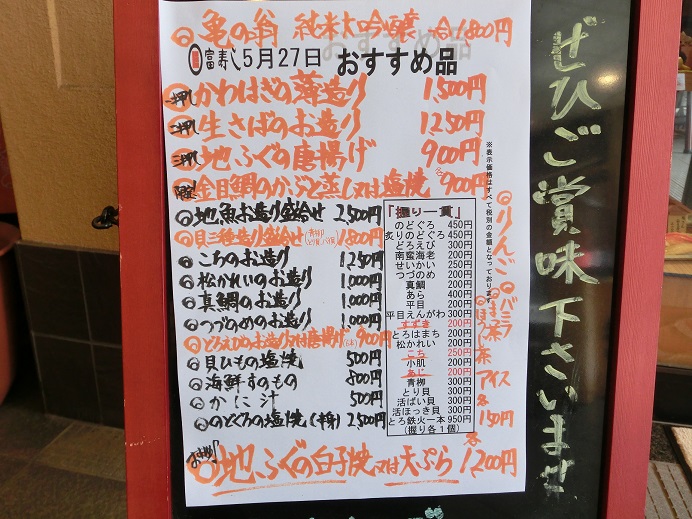 亀の翁 純米大吟醸 一合1,800円
富寿し5月27日 おすすめ品
一押し かわはぎの薄造り 1,500円
二押し 生さばのお造り 1250円
三押し 地ふぐの唐揚げ 900円
限定 金目鯛のかぶと蒸し又は塩焼 各900円
地魚お造り盛合せ 2,500円
貝三種造り盛合せ 1,800円
こちのお造り 1250円
松かれいのお造り 1,000円
真鯛のお造り 1,000円
つづのめのお造り 1,000円
どろえびのお造り又は唐揚げ 900円
貝ひもの塩焼 500円
海鮮すのもの 800円
かに汁 500円
のどぐろの塩焼(半身) 2,500円
お特別 地ふぐの白子焼又は天ぷら 各1,200円
「握り一貫」
のどぐろ 450円
炙りのどぐろ 450円
どろえび 300円
南蛮海老 200円
せいかい 250円
つづのめ 200円
真鯛 200円
あら 400円
平目 200円
平目えんがわ 300円
すずき 200円
とろはまち 200円
松かれい 200円
こち 250円
小肌 200円
あじ 200円
青柳 300円
とり貝 300円
活ばい貝 300円
活ほっき貝 300円
とろ鉄火一本 950円
(握り各1個)
※表示価格はすべて税別の金額となっております
りんご
バニラ
ほうじ茶
アイス
各150円
ぜひご賞味下さいませ